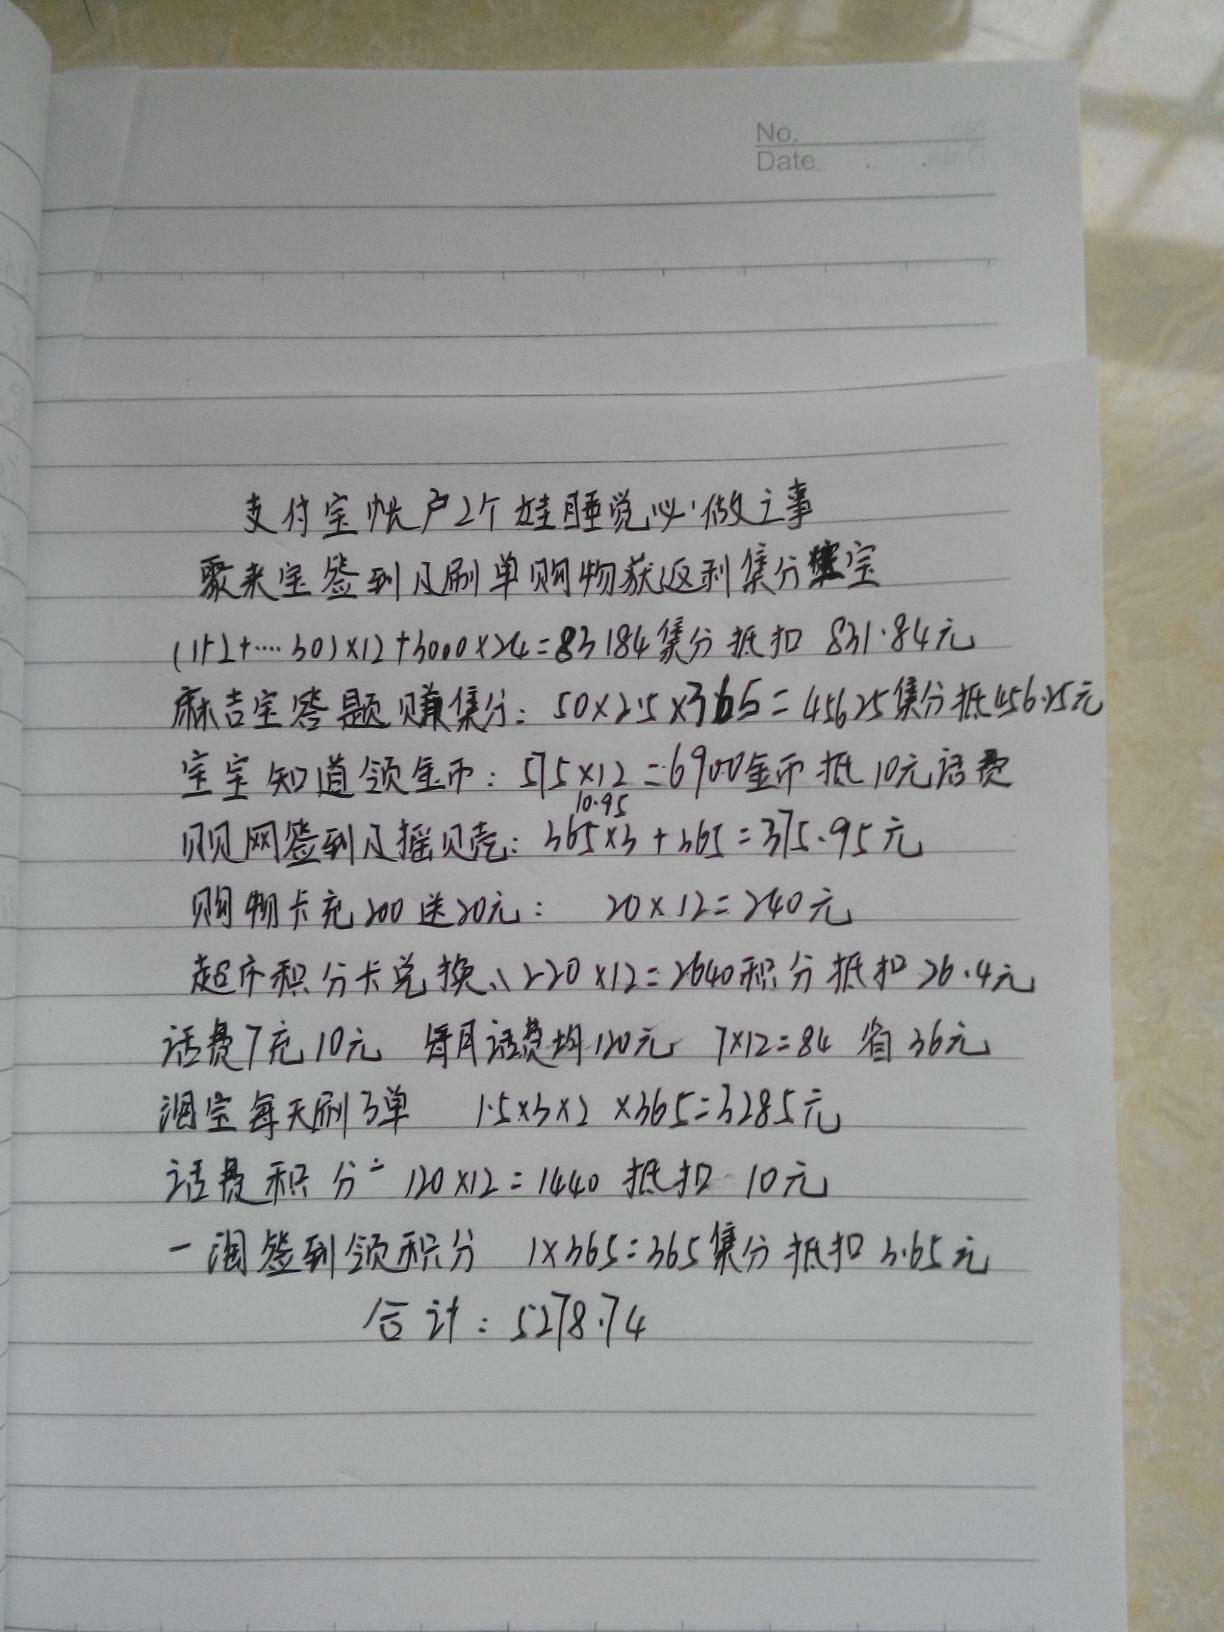 No.
Date
支付宝帐户2个娃睡觉必做之事
聚来宝签到及刷单购物获返利集分宝
(1+2+····30)×12+3000×24=83184集分抵扣 831.84元
麻吉宝答题赚集分: 50×2.5×365=45625集分抵456.25元
宝宝知道领金币: 575×12=6900金币抵10元话费
10.95
贝贝网签到及摇贝壳: 365×3+365=375.95元
购物卡充200送20元: 20×12=240元
超市积分卡兑换、220×12=2640积分抵扣26.4元
话费7充10元 每月话费均120元 7×12=84 省36元
淘宝每天刷3单 1.5×3×2×365=3285元
话费积分= 120×12=1440 抵扣 10元
一淘签到领积分 1×365=365集分抵扣3.65元
合计: 5278.74